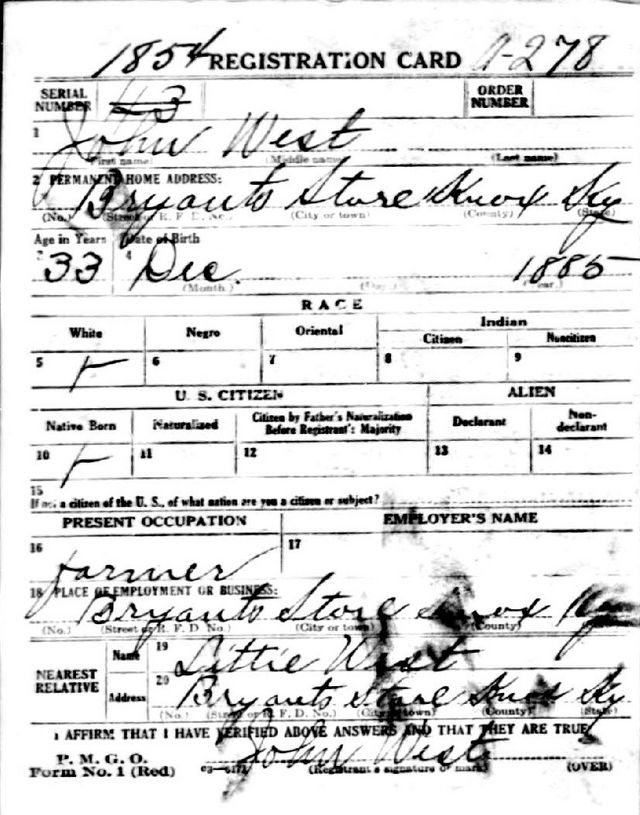 1854 REGISTRATION CARD A-278
SERIAL NUMBER 43 ORDER NUMBER
1 John West
(First name) (Middle name) (Last name)
2 PERMANENT HOME ADDRESS:
Bryants Store Knox Ky
(No.) (Street or R. F. D. No.) (City or town) (County) (State)
Age in Years Date of Birth
3 33 4 Dec. 1885
(Month.) (Day.) (Year.)
RACE
White Negro Oriental Indian
Citizen Noncitizen
5 6 7 8 9
U. S. CITIZEN ALIEN
Native Born Naturalized Citizen by Father's Naturalization Before Registrant's Majority Declarant Non-declarant
10 11 12 13 14
15
If not a citizen of the U. S., of what nation are you a citizen or subject?
PRESENT OCCUPATION EMPLOYER'S NAME
16 farmer 17
18 PLACE OF EMPLOYMENT OR BUSINESS:
Bryants Store Knox Ky
(No.) (Street or R. F. D. No.) (City or town) (County) (State)
NEAREST RELATIVE Name 19 Littie West
Address 20 Bryants Store Knox Ky
(No.) (Street or R. F. D. No.) (City or town) (County) (State)
I AFFIRM THAT I HAVE VERIFIED ABOVE ANSWERS AND THAT THEY ARE TRUE
P. M. G. O.
Form No. 1 (Red) John West
(Registrant's signature or mark) (OVER)